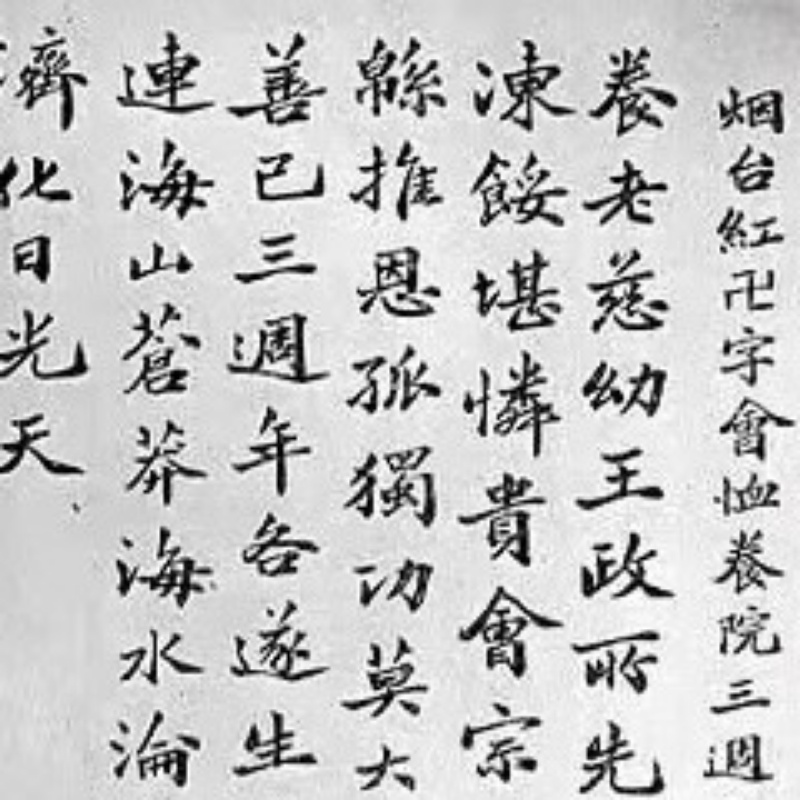 烟台紅卍字會恤養院三週
養老慈幼王政所先
凍餒堪憐貴會宗
緜推恩孤獨功莫大
善已三週年各遂生
連海山蒼莽海水淪
濟化日光天